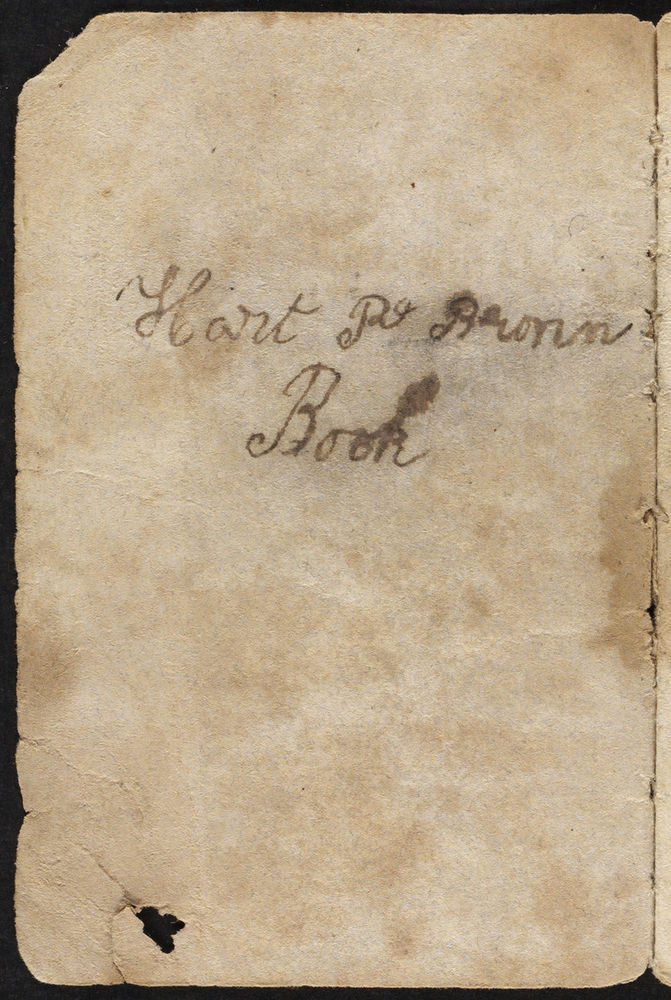 Hart Po Bronn
Book